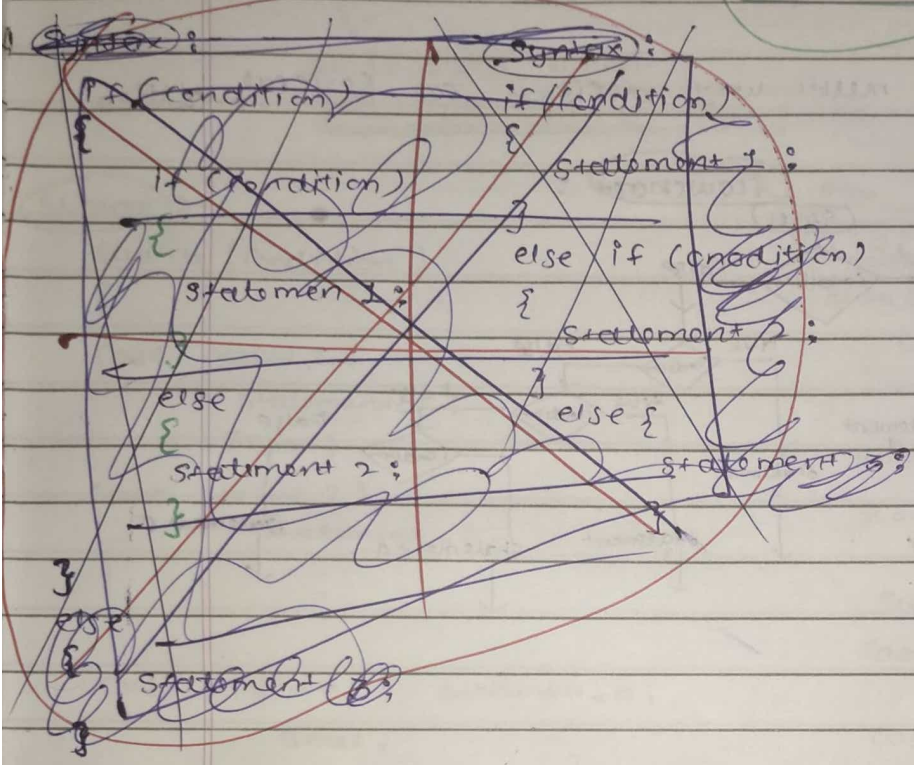 Syntax :
if (condition)
{
if (condition)
{
statemen 1 ;
}
else
{
statement 2 ;
}
}
else
{
statement 3 ;
}
Syntax :
if (condition)
{
statement 1 ;
}
else if (condition)
{
statement 2 ;
}
else {
statement 3 ;
}